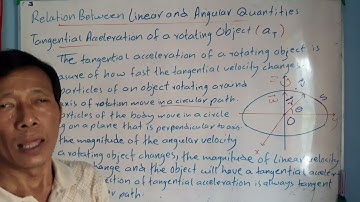 Relation Between Linear and Angular Quantities
Tangential Acceleration of a rotating Object (aT)
The tangential acceleration of a rotating object is
asure of how fast the tangential velocity changes
particles of an object rotating around
axis of rotation move in a circular path.
articles of the body move in a circle
on a plane that is perpendicular to axis
the magnitude of the angular velocity
a rotating object changes, the magnitude of linear velocity
change and the object will have a tangential acceler
ection of tangential acceleration is always tangent
ar path